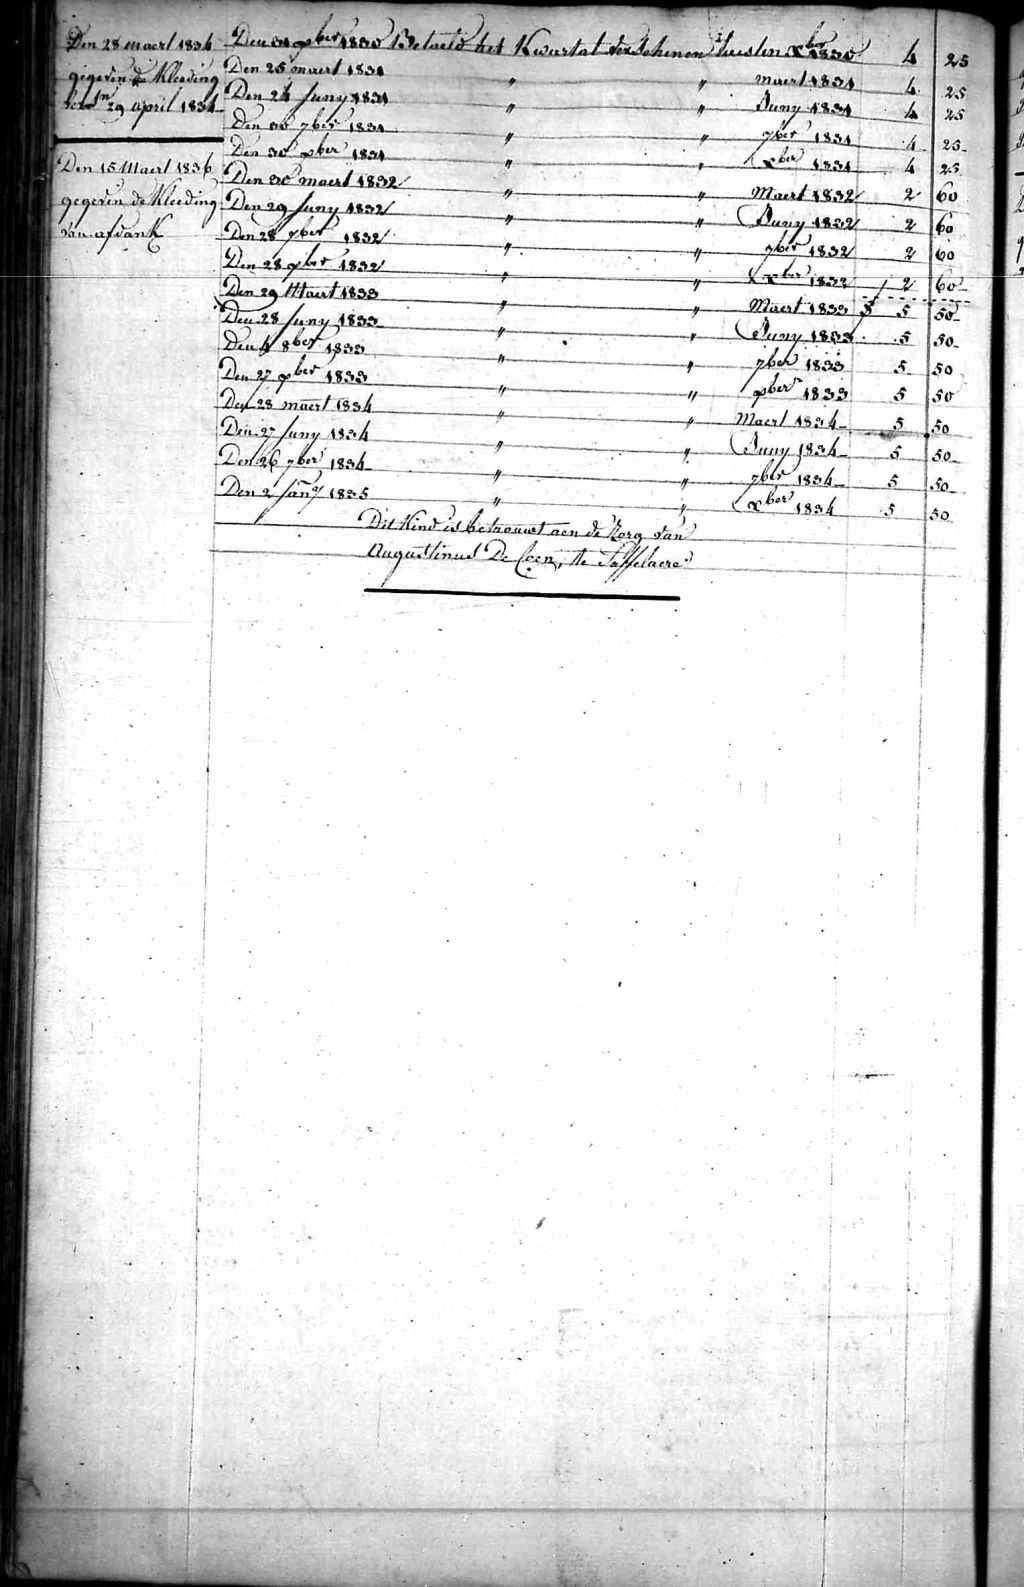 Den 28 maert 1834
gegeven de Kleeding
29 april 1834
Den 15 Maert 1836
gegeven de Kleeding
van afdank
Den 31 9ber 1830 Betaeld het Kwartal verschenen leesten Xber 1830 4 25
Den 25 maert 1831 " " maert 1831 4 25
Den 24 Juny 1831 " " Juny 1831 4 25
Den 30 7ber 1831 " " 7ber 1831 4 25
Den 30 9ber 1831 " " Xber 1831 4 25
Den 30 maert 1832 " " Maert 1832 2 60
Den 29 Juny 1832 " " Juny 1832 2 60
Den 28 7ber 1832 " " 7ber 1832 2 60
Den 28 9ber 1832 " " Xber 1832 2 60
Den 29 Maert 1833 " " Maert 1833 5 50
Den 28 Juny 1833 " " Juny 1833 5 50
Den 4 8ber 1833 " " 7ber 1833 5 50
Den 27 9ber 1833 " " 9ber 1833 5 50
Den 28 maert 1834 " " Maert 1834 5 50
Den 27 Juny 1834 " " Juny 1834 5 50
Den 26 7ber 1834 " " 7ber 1834 5 50
Den 2 Jany 1835 " " Xber 1834 5 50
Dit Kind is betrouwt aen de Zorg van
Augustinus De Coen, te Saffelaere